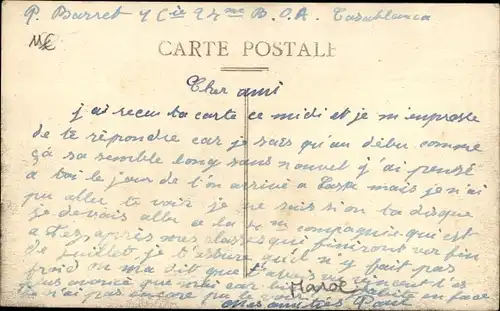 P. Barret 4 Cie 27me B.O.A. Casablanca
CARTE POSTALE
Cher ami
j'ai recu ta carte ce midi et je m'empresse
de te répondre car je sais qu'au débu comme
ça sa semble long sans nouvel j'ai pensé
a toi le jour de l'on arrivé a Casa mais je n'ai
pu aller te voir je ne sais si on ta disque
je devais aller a la compagnie qui est
a Fez après nous classes qui finiront ver fin
de juillet je t'assure qu'il n'y fait pas
froid on ma dit que
plus avancé que moi car en face
tu n'ai pas encore
Mes amitiés Paul
Maroc